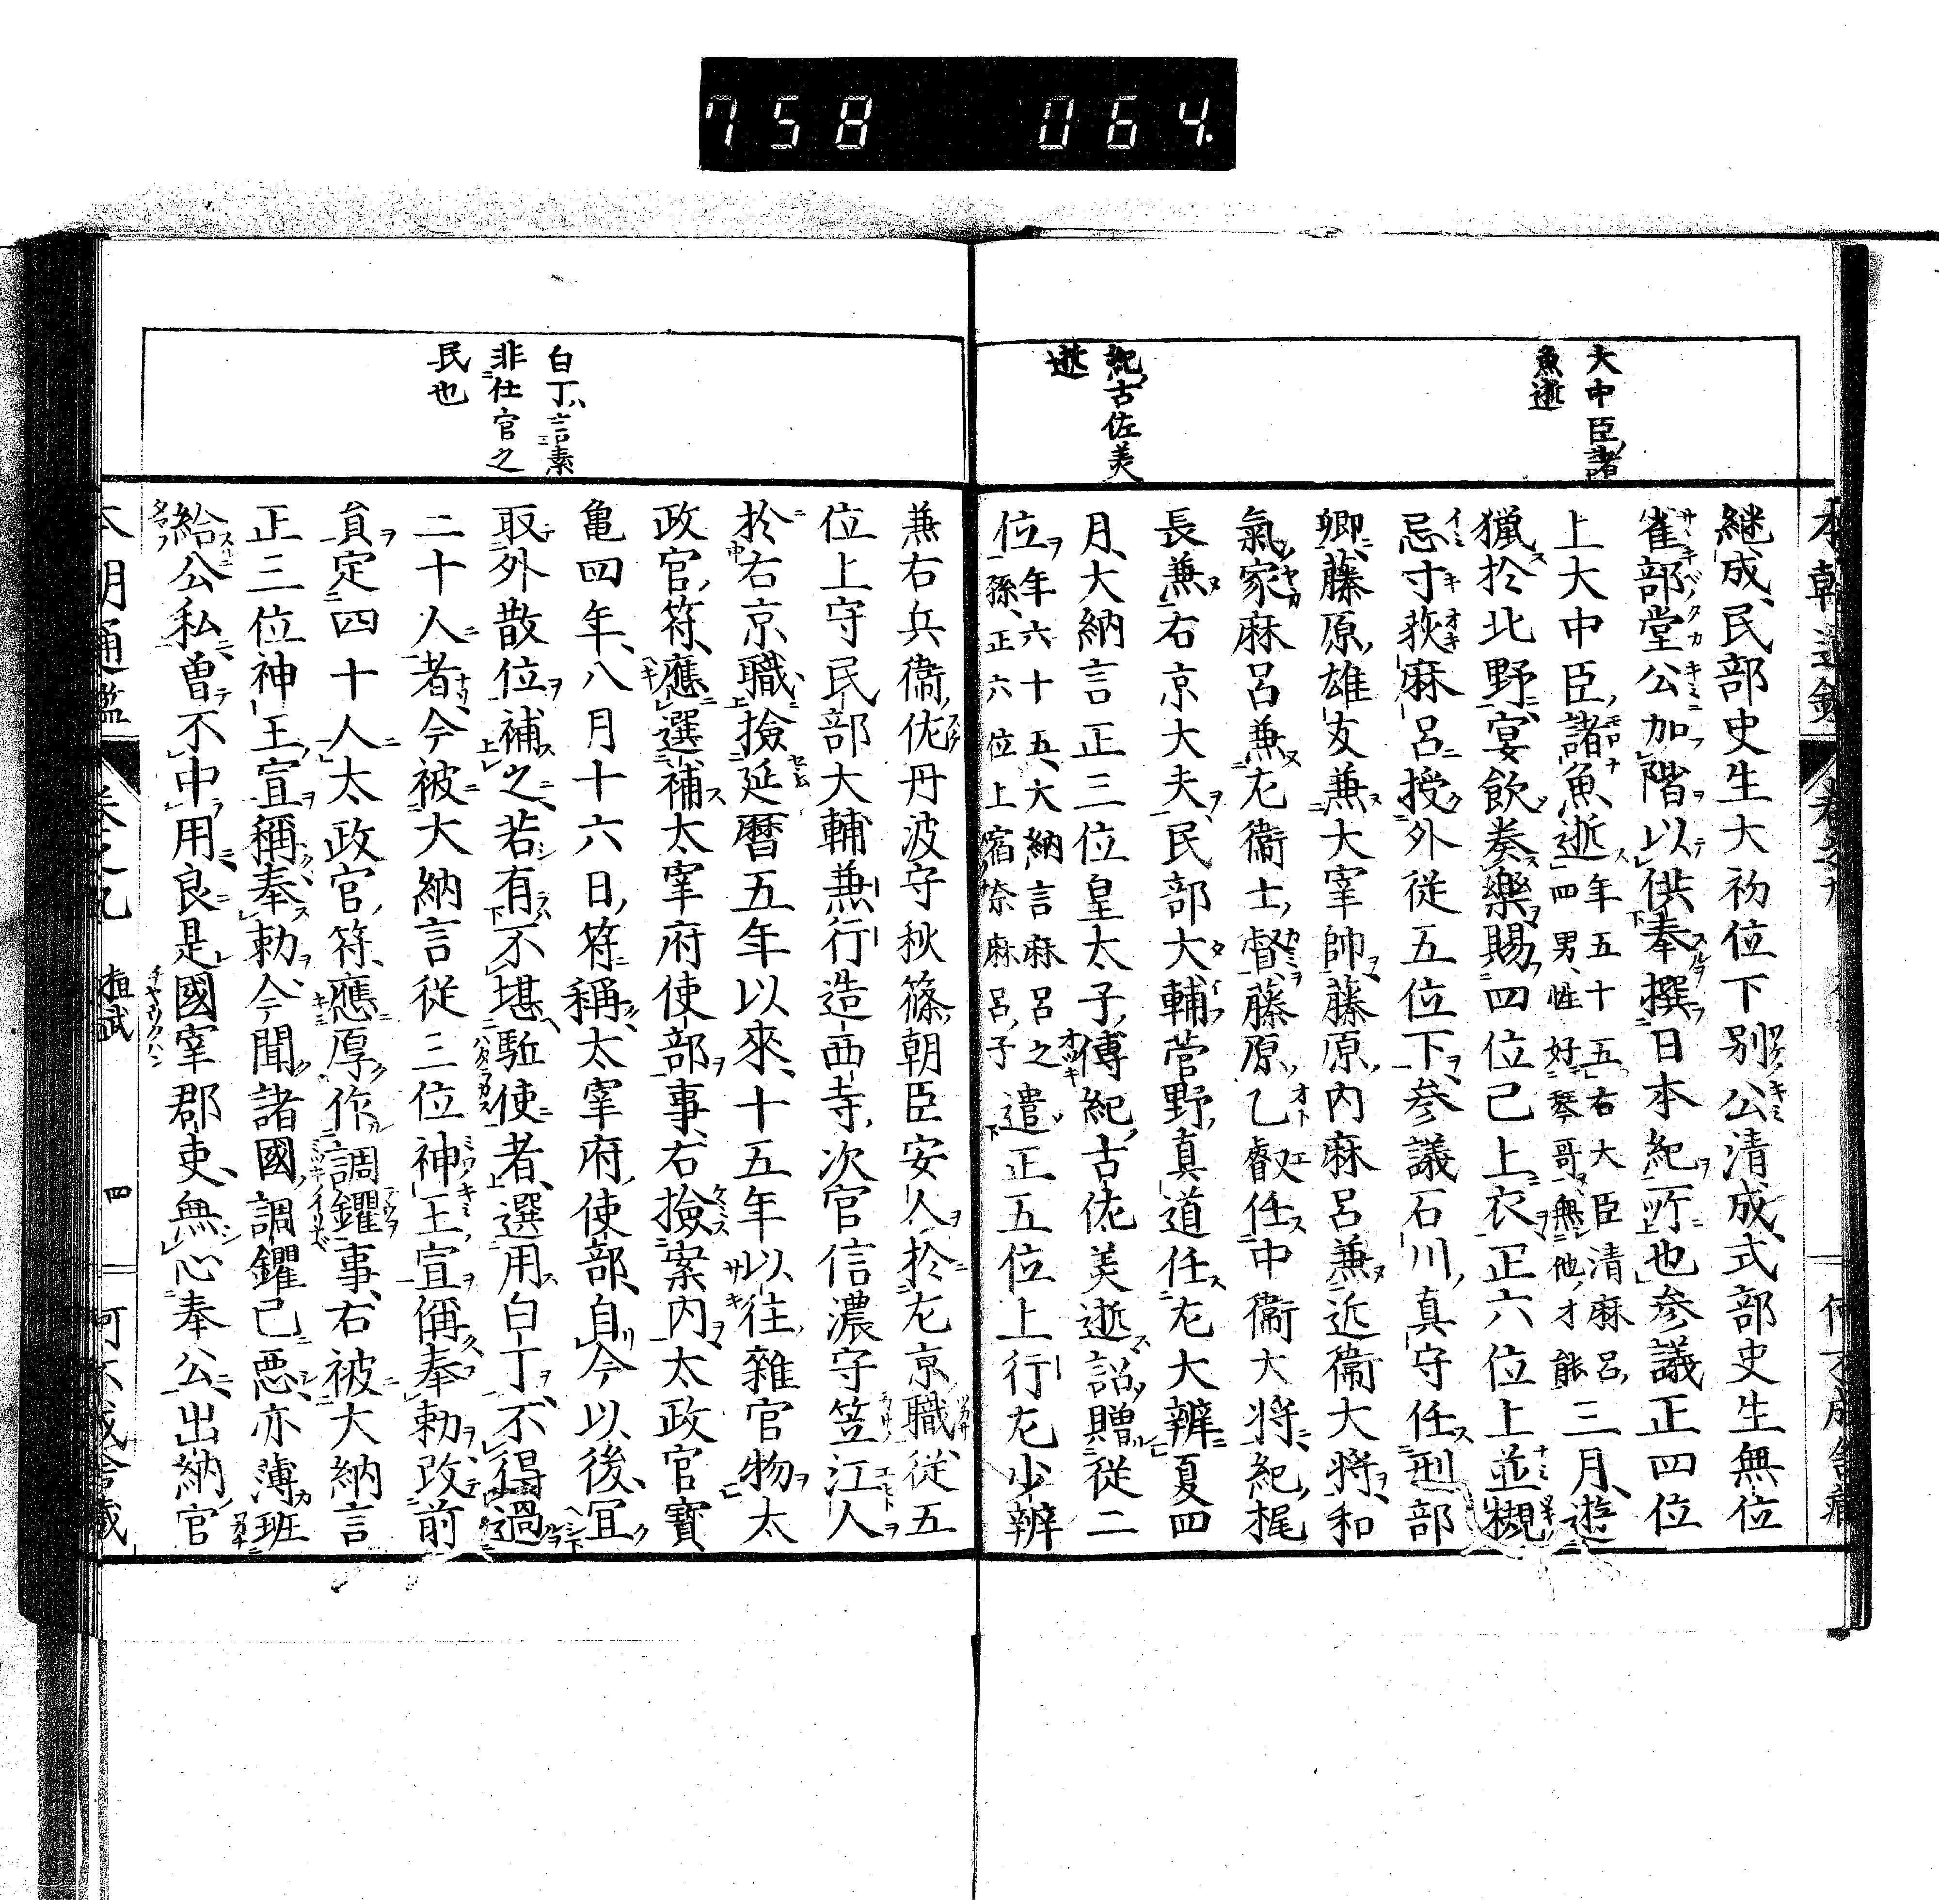 758 064.
大中臣諸
魚逝
紀古佐美
逝
継成民部史生大初位下別公清成式部史生無位
雀部堂公加階以供奉撰日本紀所也参議正四位
上大中臣諸魚逝年五十五右大臣清麻呂三月遊
四男性好琴哥無他才能
獵於北野宴飲奏樂賜四位已上衣正六位上並槻
忌寸荻麻呂授外従五位下参議石川真守任刑部
卿藤原雄友兼大宰帥藤原内麻呂兼近衞大将和
氣家麻呂兼左衞士督藤原乙叡任中衞大将紀梶
長兼右京大夫民部大輔菅野真道任左大辨夏四
月大納言正三位皇太子傅紀古佐美逝詔贈従二
位年六十五大納言麻呂之遣正五位上行左少辨
孫正六位上宿奈麻呂子
白丁言素
非仕官之
民也
兼右兵衞佐丹波守秋篠朝臣安人於左京職従五
位上守民部大輔兼行造西寺次官信濃守笠江人
於右京職撿延暦五年以來十五年以往雜官物太
政官符應選補太宰府使部事右撿案内太政官寳
亀四年八月十六日符稱太宰府使部自今以後冝
取外散位補之若有不堪駈使者選用白丁不得過
二十人者今被大納言従三位神王宣偁奉勅改前
貟定四十人太政官符應厚作調钁事右被大納言
正三位神王宣稱奉勅今聞諸國調钁已悪亦薄班
給公私曽不中用良是國宰郡吏無心奉公出納官
本朝通鑑 巻之九 桓武 四